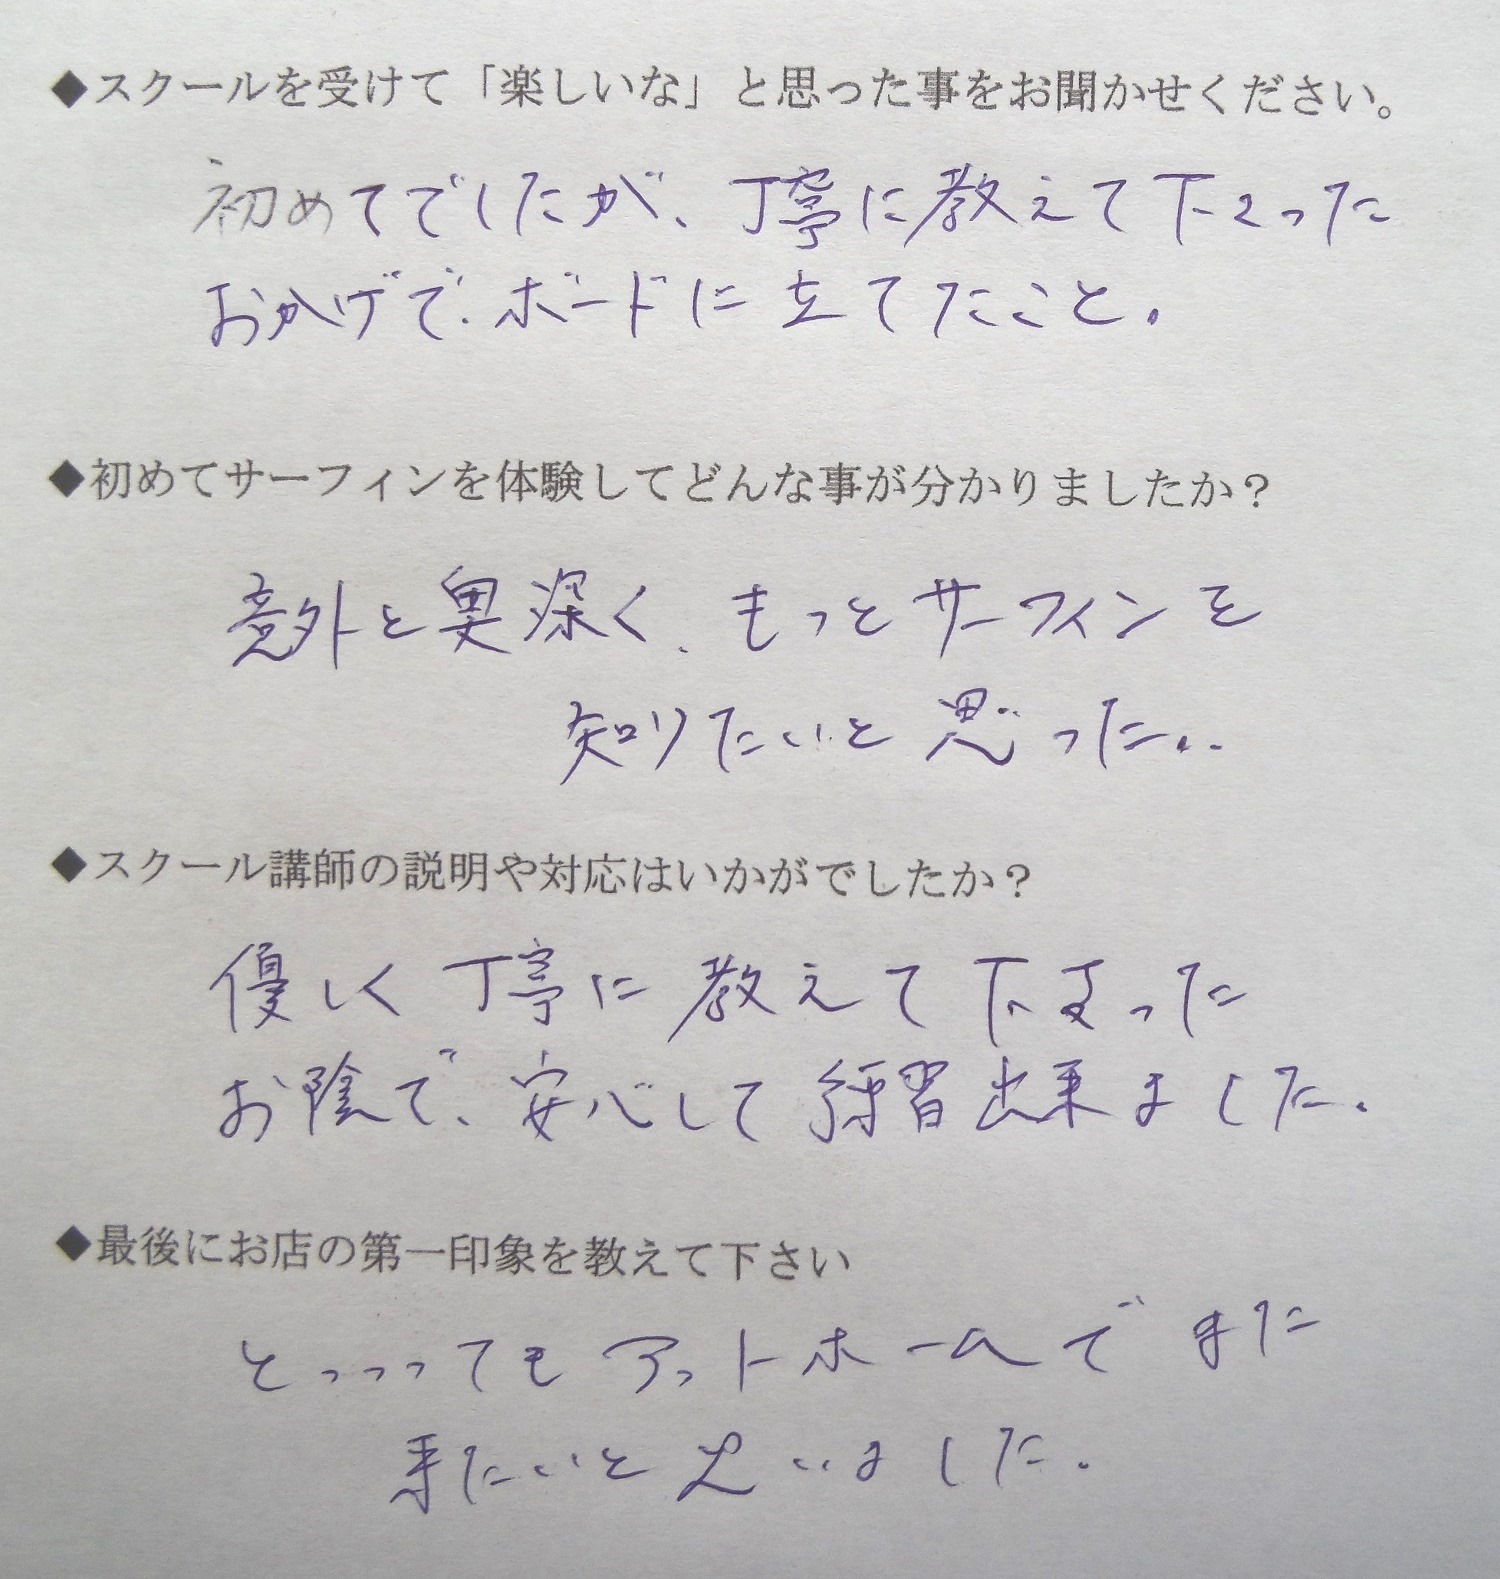 ◆スクールを受けて「楽しいな」と思った事をお聞かせください。
初めてでしたが、丁寧に教えて下さった
おかげで、ボードに立てたこと。
◆初めてサーフィンを体験してどんな事が分かりましたか？
意外と奥深く、もっとサーフィンを
知りたいと思った。.
◆スクール講師の説明や対応はいかがでしたか？
優しく丁寧に教えて下さった
お陰で、安心して練習出来ました。
◆最後にお店の第一印象を教えて下さい
とっっってもアットホームでまた
来たいと思いました。